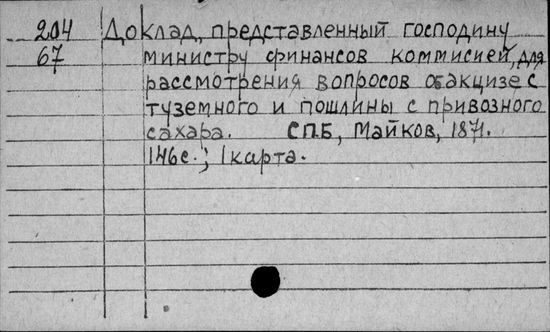 204 Доклад, представленный господину
67 министру финансов коммисией, для
рассмотрения вопросов об акцизе с
туземного и пошлины с привозного
сахара. СПБ, Майков, 1871.
146с.; 1 карта.